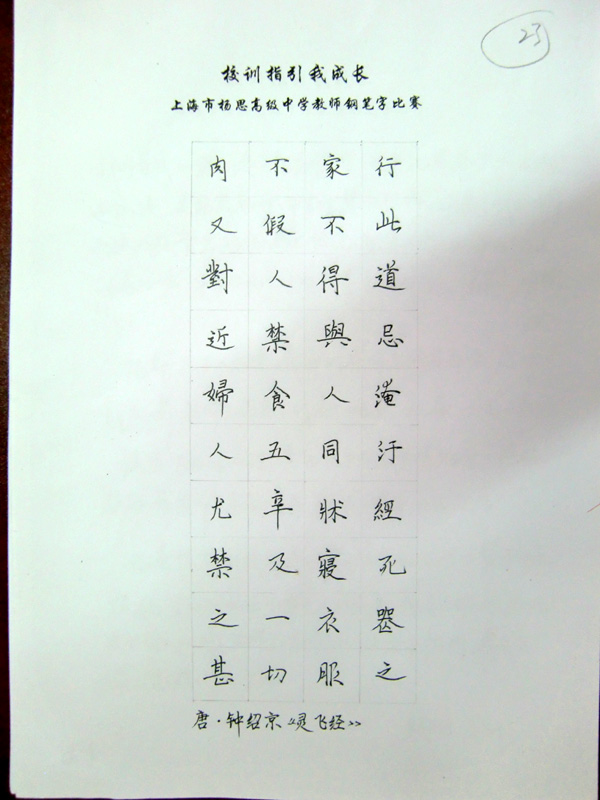 23
校训指引我成长
上海市杨思高级中学教师钢笔字比赛
行此道忌淹汙經死喪之
家不得與人同牀寢衣服
不假人禁食五辛及一切
肉又對近婦人尤禁之甚
唐·钟绍京《灵飞经》